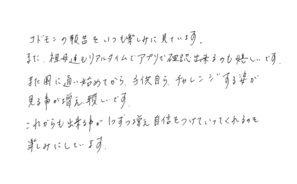 コドモンの報告をいつも楽しみに見ています。
また、祖母達もリアルタイムでアプリで確認出来るのも嬉しいです。
また園に通い始めてから、子供自ら、チャレンジする姿が
見る事が増え頼しいです。
これからも出来る事が1つずつ増え自信をつけていってくれるのを
楽しみにしています。